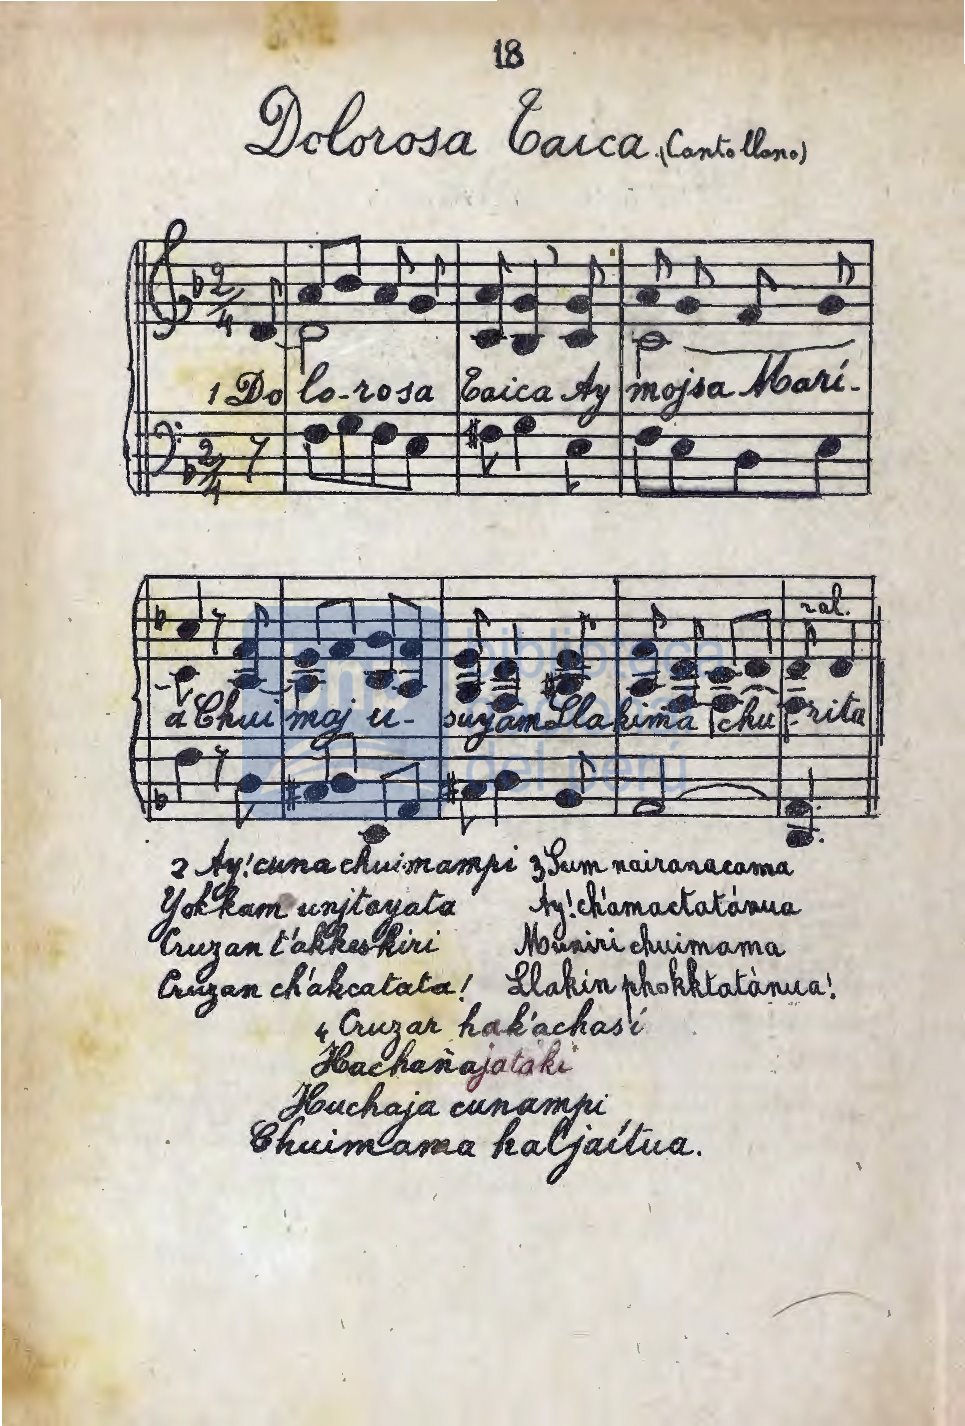 18
Dolorosa Taica (Canto llano)
1 Do lo-rosa Taica Ay mojsa Marí-
ral.
a Chui moj u- suyam Llakima chu-rita
biblioteca
del perú
2 Ay! cuna chuimampi
Yokkam unjtayata
Cruzan t'akkeskiri
Cruzan ch'akcatata!
3 Sum nairanacama
Ay! ch'amactatánua
Muniri chuimama
Llakin phokktatànua!
4 Cruzar hak'achasí
Hachañajataki
Huchaja cunampi
Chuimama kaljaítua.